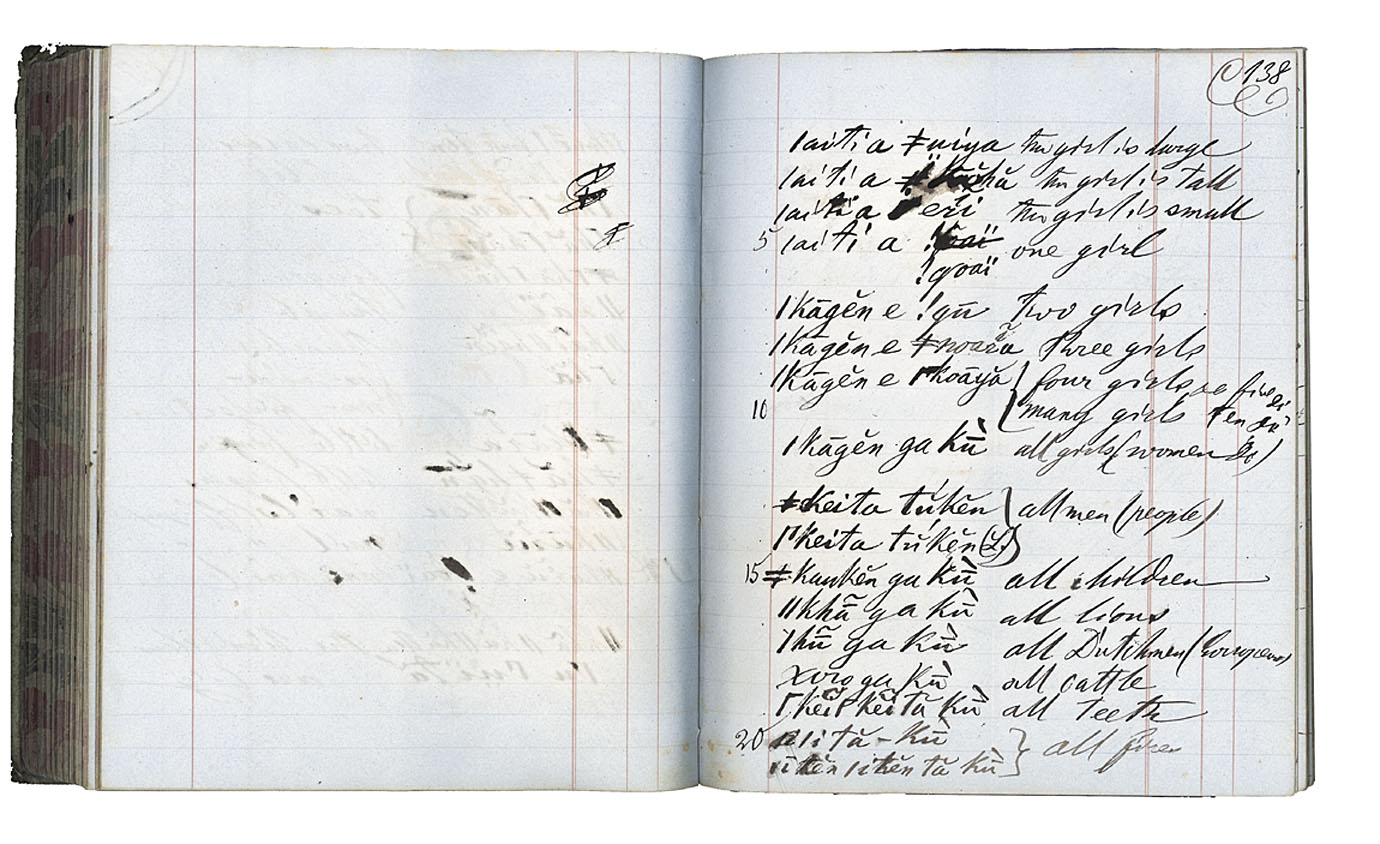 138
|aiti a ǂuiya the girl is large
|aiti a the girl is tall
|aiti a eři the girl is small
5 |aiti a one girl
!qoaï
|kāgĕn e !qū two girls
|kāgĕn e three girls
|kāgĕn e four girls or five
10 many girls ten
|kāgĕn ga kù̄ all girls (women &c)
ǂkeita túkĕn } all men (people)
keita túkĕn (L.)
15 ǂkaukĕn ga kù̄ all children
||khã ga kù̄ all lions
|hũ ga kù̄ all Dutchmen (Europeans)
Xoro ga kù̄ all cattle
kĕi kĕi tă kù̄ all teeth
20 |i tă - kù̄ } all fires
|ĭtĕn |ĭtĕn tă kù̄